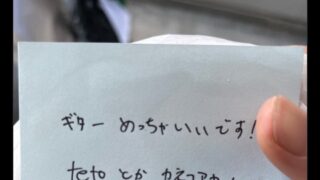 ギター めっちゃいいです!
teto とか